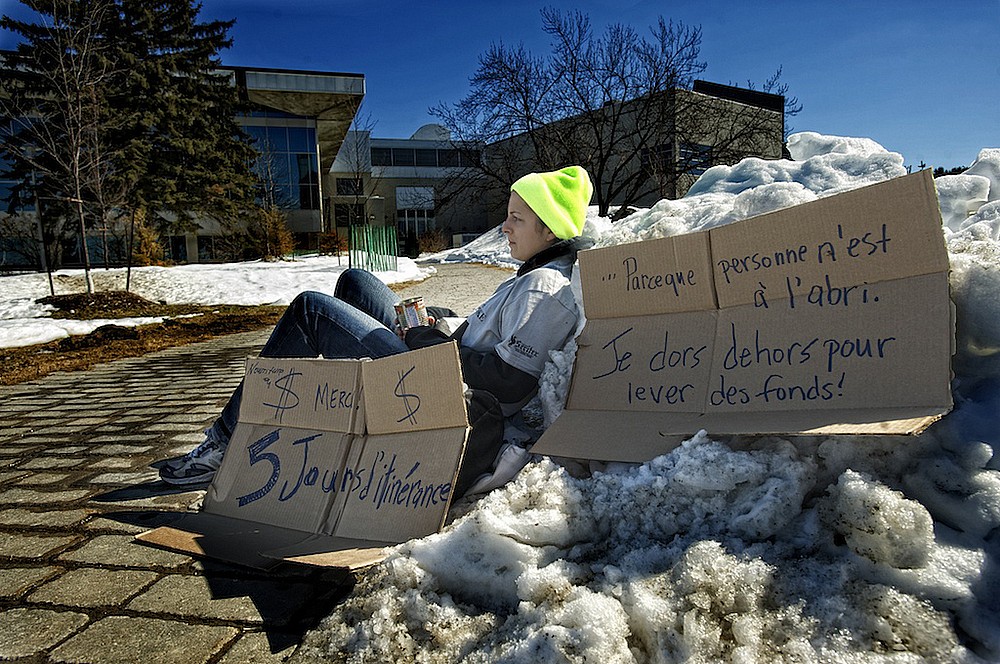 $ MERCI $
5 Jours d'itinérance
... Parceque personne n'est
à l'abri.
Je dors dehors pour
lever des fonds!